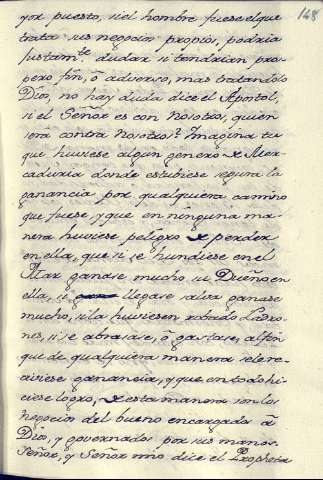 148
yor puesto, si el hombre fuese el que
trata sus negocios propios, podria
justamte dudar si tendrian pros-
pero fin, ó adverso, mas tratandolo
Dios, no hay duda dice el Apostol,
si el Señor es con Nosotros, quien
será contra nosotros? Imagina tu
que huviese algun genero de Mer-
caduria donde estubiese segura la
ganancia por qualquiera camino
que fuese, y que en ninguna ma-
nera huviese peligro de perder
en ella, que si se hundiese en el
Mar ganase mucho su Dueño en
ella, si llegase salva ganase
mucho, si la huviesen robado Ladro-
nes, si se abrasase, ó gastase, al fin
que de qualquiera manera se le re-
civiese ganancia, y que en todo hi-
ciese logro, de esta manera son los
negocios del bueno encargada á
Dios, y governados por sus manos.
Señor, y Señor nro dice el Propheta